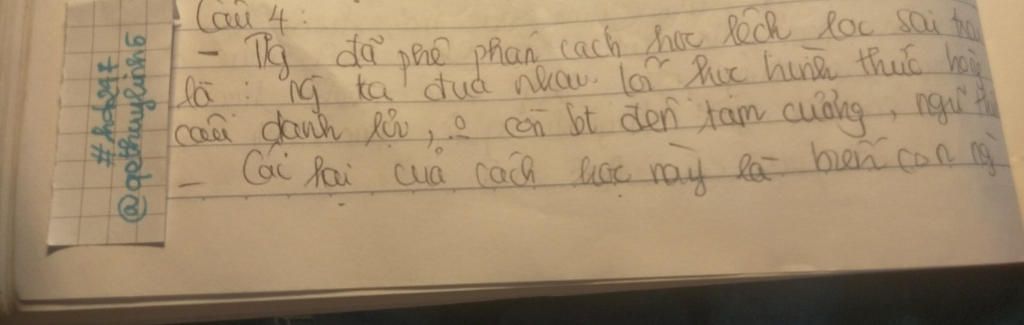 Câu 4:
- Tg đã phê phán cách học lệch lạc sai
là: ng ta đua nhau lối học hình thức
cầu danh lợi, o còn bt đến tam cương, ngũ
- Cái hại của cách học này là biến con ng
#hoc247